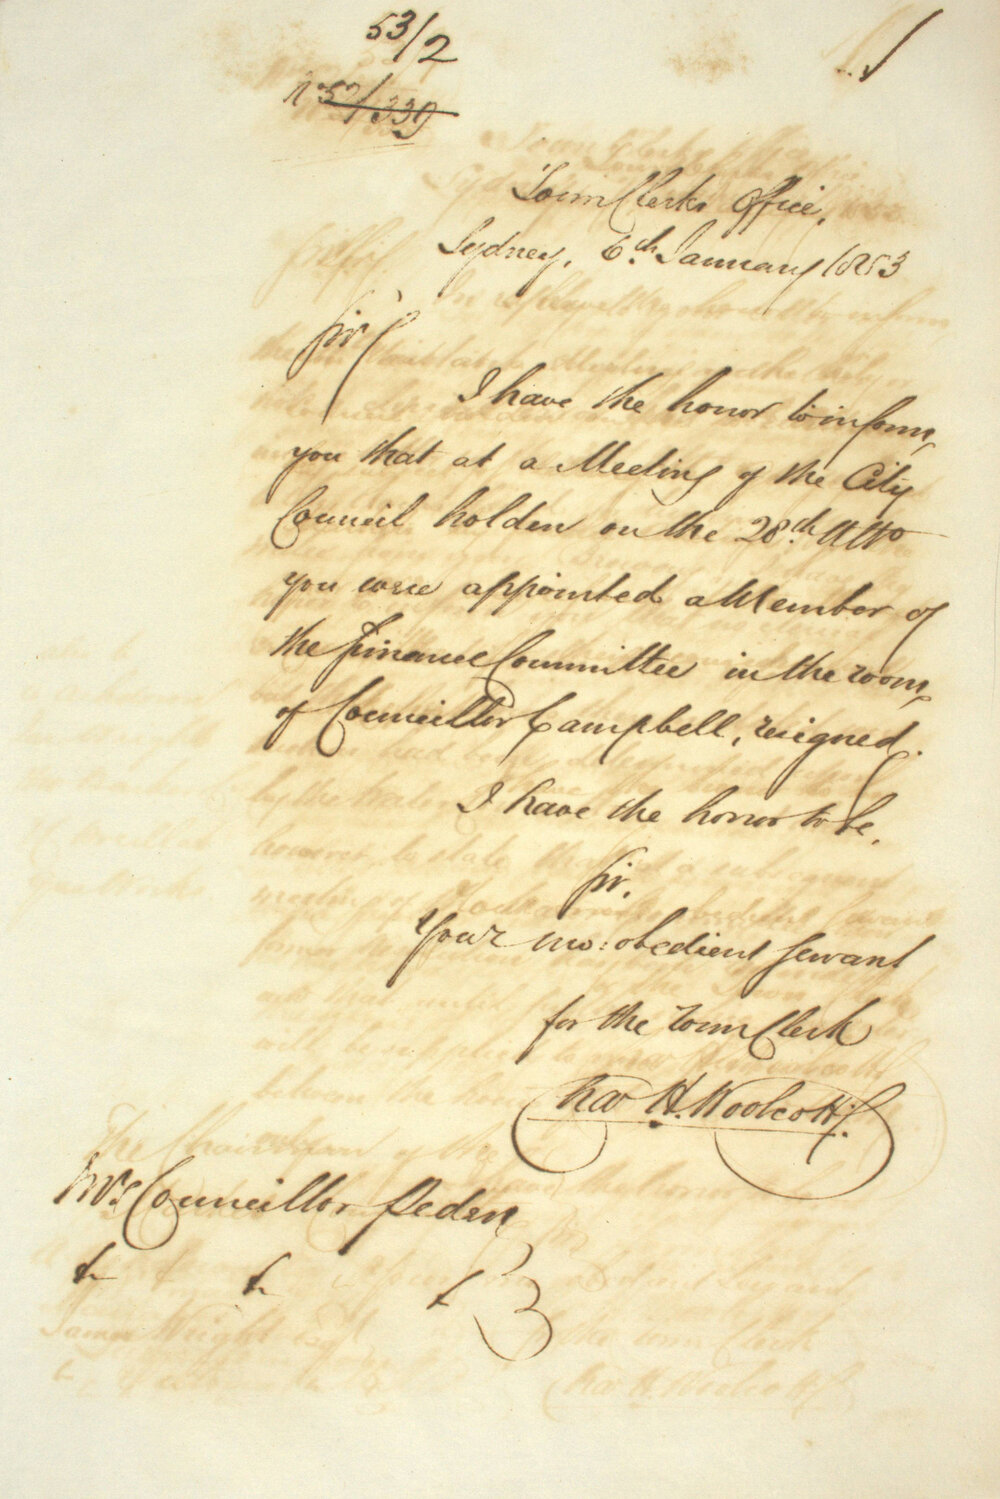 53/2
No 52/339
Town Clerks Office,
Sydney, 6th January 1853
Sir
I have the honor to inform
you that at a Meeting of the City
Council holden on the 28th Ulto
you were appointed a Member of
the Finance Committee in the room
of Councillor Campbell, resigned.
I have the honor to be,
Sir,
Your mo: obedient Servant
for the Town Clerk
Chas H. Woolcott.
Mr Councillor Peden